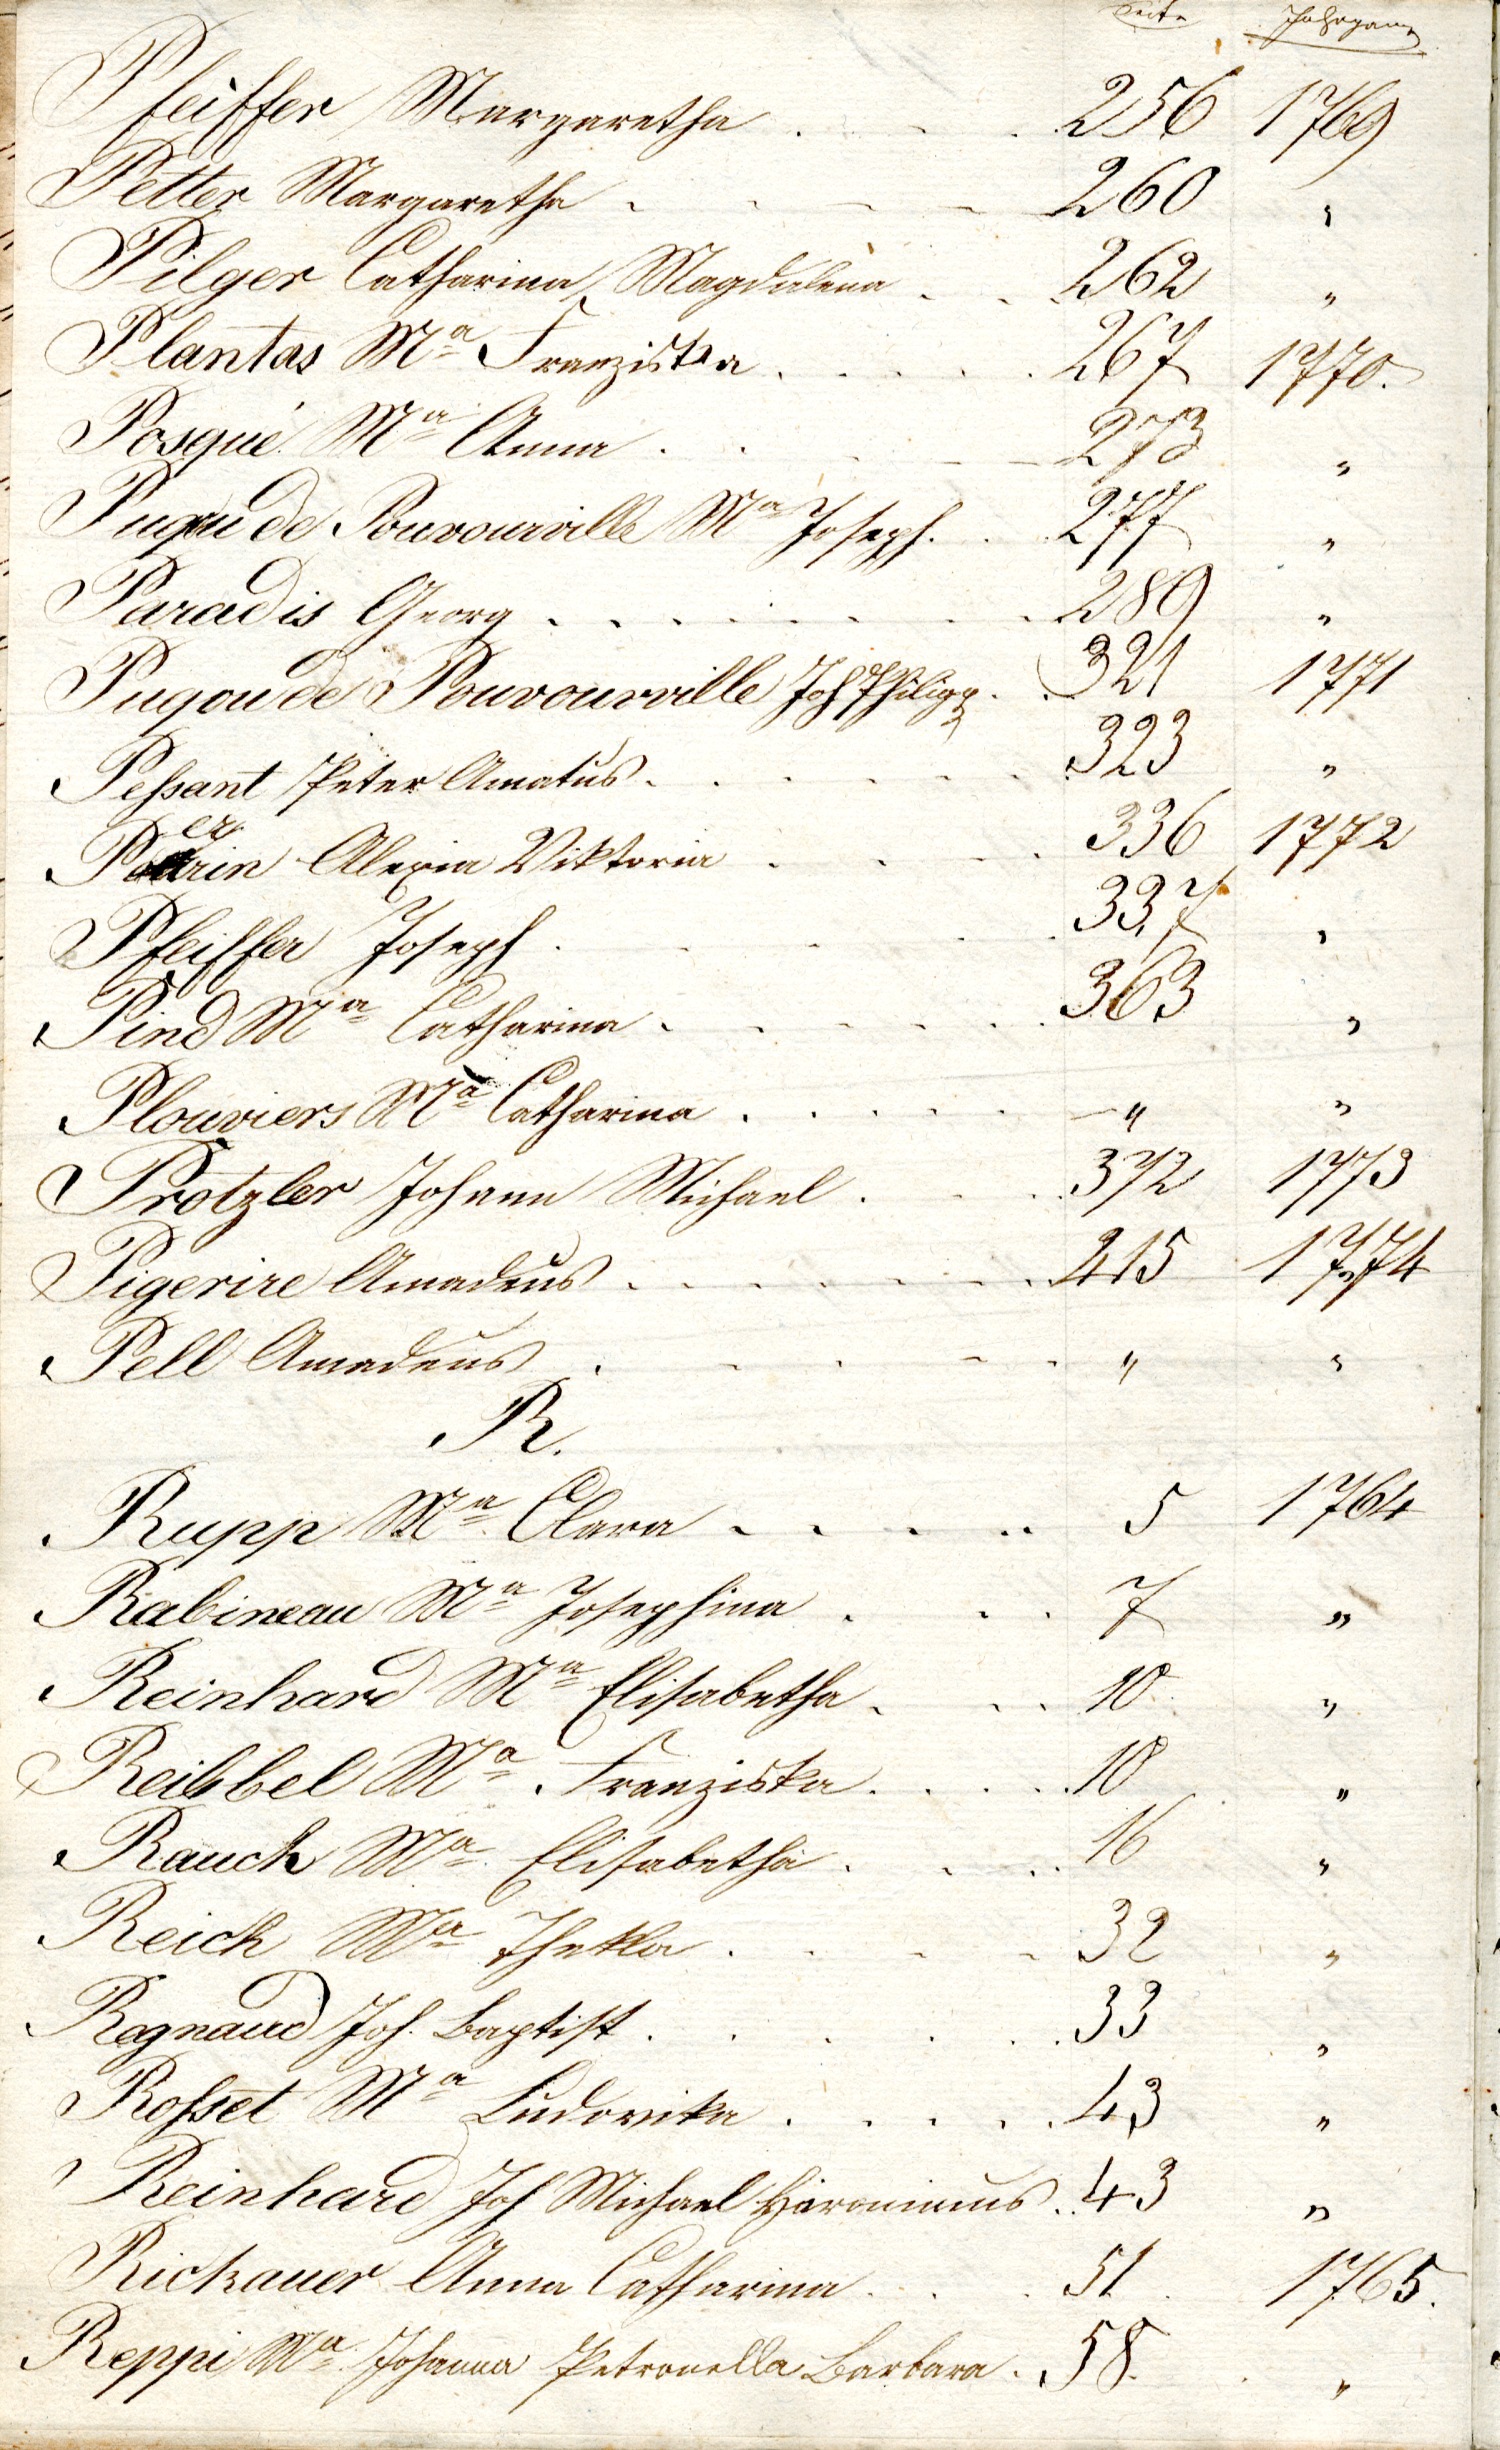 Seite Jahrgang
Pfeiffer Margaretha . . . . 256 1769
Petter Margaretha . . . . . 260 "
Pilger Catharina Magdalena . . . 262 "
Plantas Ma Franziska . . . . . 267 1770.
Posqué Ma Anna . . . . . 273 "
Pugu de Pouvourville Ma Joseph. . . 277 "
Paradis Georg . . . . . . . . 289 "
Pugou de Pouvourville Joh Philipp. . 321 1771
Peßant Peter Amatus . . . . . . 323 "
er
Perin Alexia Viktoria . . . . . 336 1772
Pfeiffer Joseph . . . . . 337 "
Pind Ma Catharina . . . . . . 363 "
Plouviers Ma Catharina . . . . . " "
Protzler Johann Michael . . . 372 1773
Pigerire Amadeus . . . . . . . 415 1774
Pell Amadeus . . . . . " "
R.
Rupp Ma Clara . . . . . 5 1764
Rabineau Ma Josephina . . . 7 "
Reinhard Ma Elisabetha . . . 10 "
Reibbel Ma Franziska . . . . 10 "
Rauch Ma Elisabetha . . . . 16 "
Reich Ma Thekla . . . . 32 "
Regnaud Joh. Baptist . . . . . 33 "
Roßet Ma Ludovika . . . . . 43 "
Reinhard Joh Michael Hieronimus . 43 "
Rickauer Anna Catharina . . . 51 1765.
Reppi Ma Johanna Petronella Barbara . 58 "